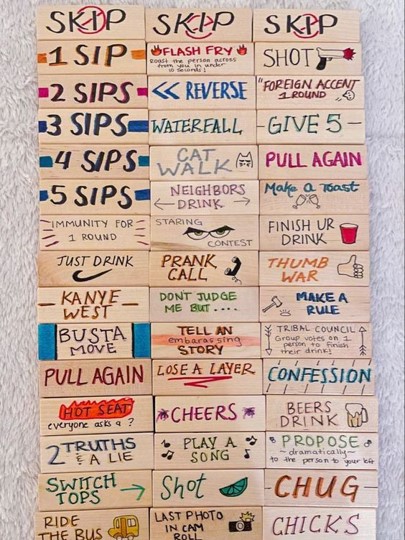 SKIP
SKIP
SKIP
1 SIP
FLASH FRY
Roast the person across
from you in under
10 seconds!
SHOT
2 SIPS
<< REVERSE
"FOREIGN ACCENT
1 ROUND
3 SIPS
WATERFALL
GIVE 5
4 SIPS
CAT
WALK
PULL AGAIN
5 SIPS
NEIGHBORS
DRINK
Make a Toast
IMMUNITY FOR
1 ROUND
STARING
CONTEST
FINISH UR
DRINK
JUST DRINK
PRANK
CALL
THUMB
WAR
KANYE
WEST
DON'T JUDGE
ME BUT....
MAKE A
RULE
BUSTA
MOVE
TELL AN
embarassing
STORY
TRIBAL COUNCIL
Group votes on 1
person to finish
their drink!
PULL AGAIN
LOSE A LAYER
CONFESSION
HOT SEAT
everyone asks a ?
CHEERS
BEERS
DRINK
2 TRUTHS
& A LIE
PLAY A
SONG
PROPOSE
-dramatically-
to the person to your left
SWITCH
TOPS
Shot
CHUG
RIDE
THE BUS
LAST PHOTO
IN CAM
ROLL
CHICKS